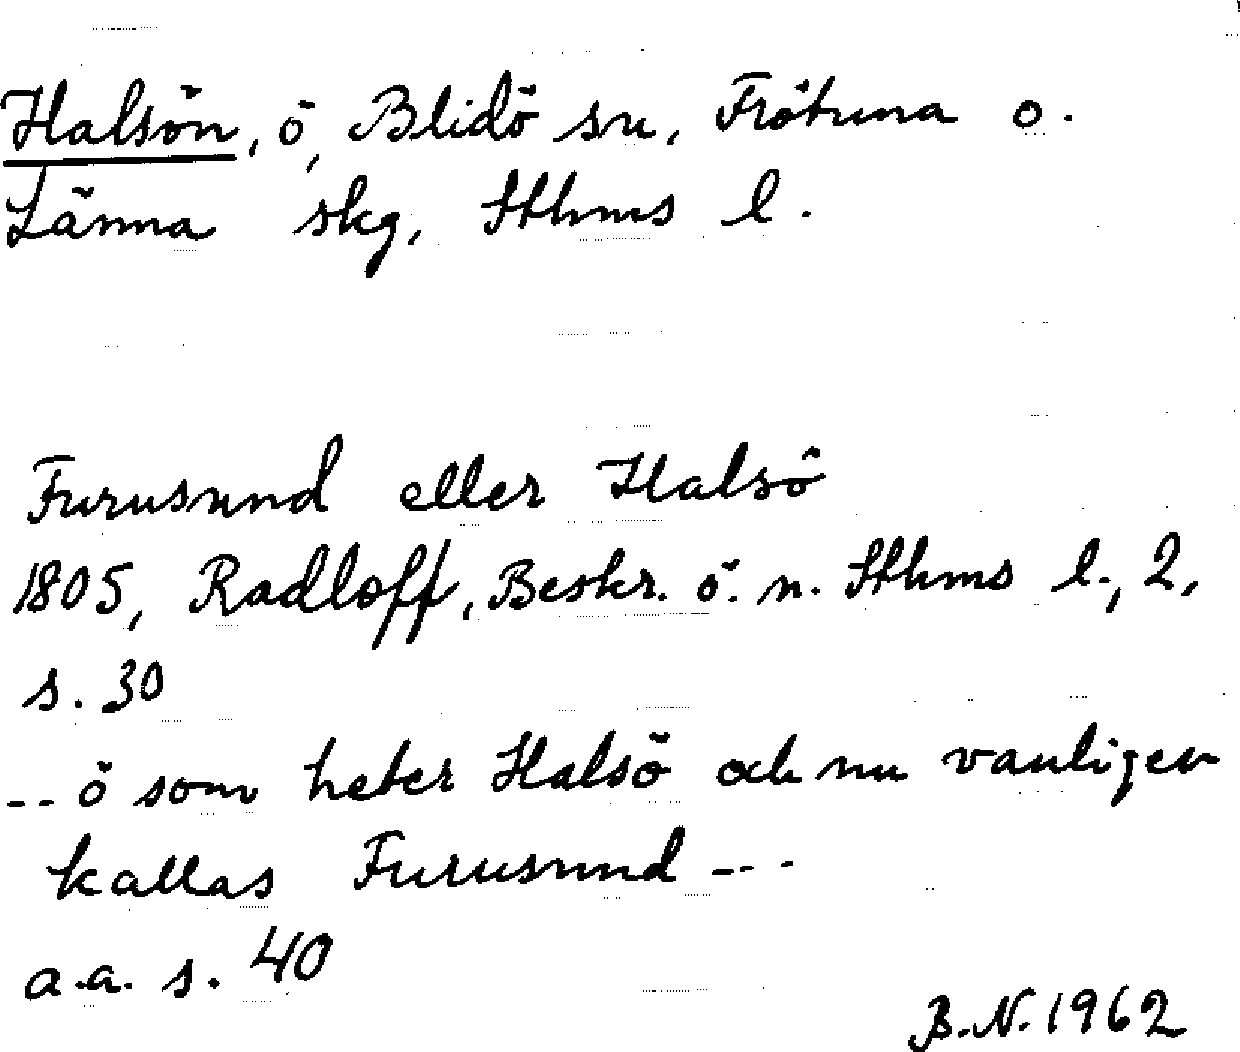 Halsön, ö, Blidö sn, Frötuna o.
Länna skg, Sthms l.
Furusund eller Halsö
1805, Radloff, Beskr. ö. n. Sthms l., 2,
s. 30
-- ö som heter Halsö och nu vanligen
kallas Furusund ---
a.a. s. 40
B.N. 1962